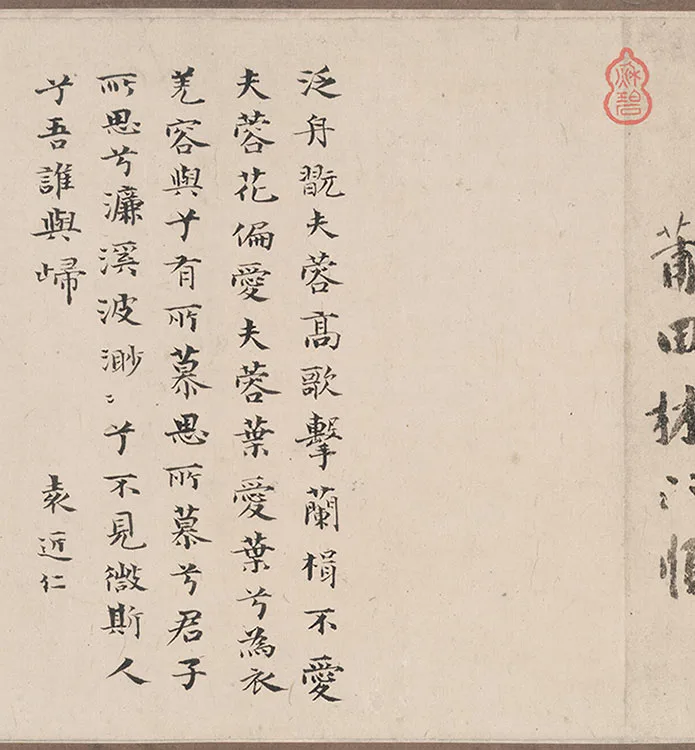 莆田林
泛舟翫夫蓉高歌擊蘭楫不愛
夫蓉花偏愛夫蓉葉愛葉兮為衣
羌容與兮有所慕思所慕兮君子
所思兮濂溪波渺〻兮不見微斯人
兮吾誰與歸
袁近仁